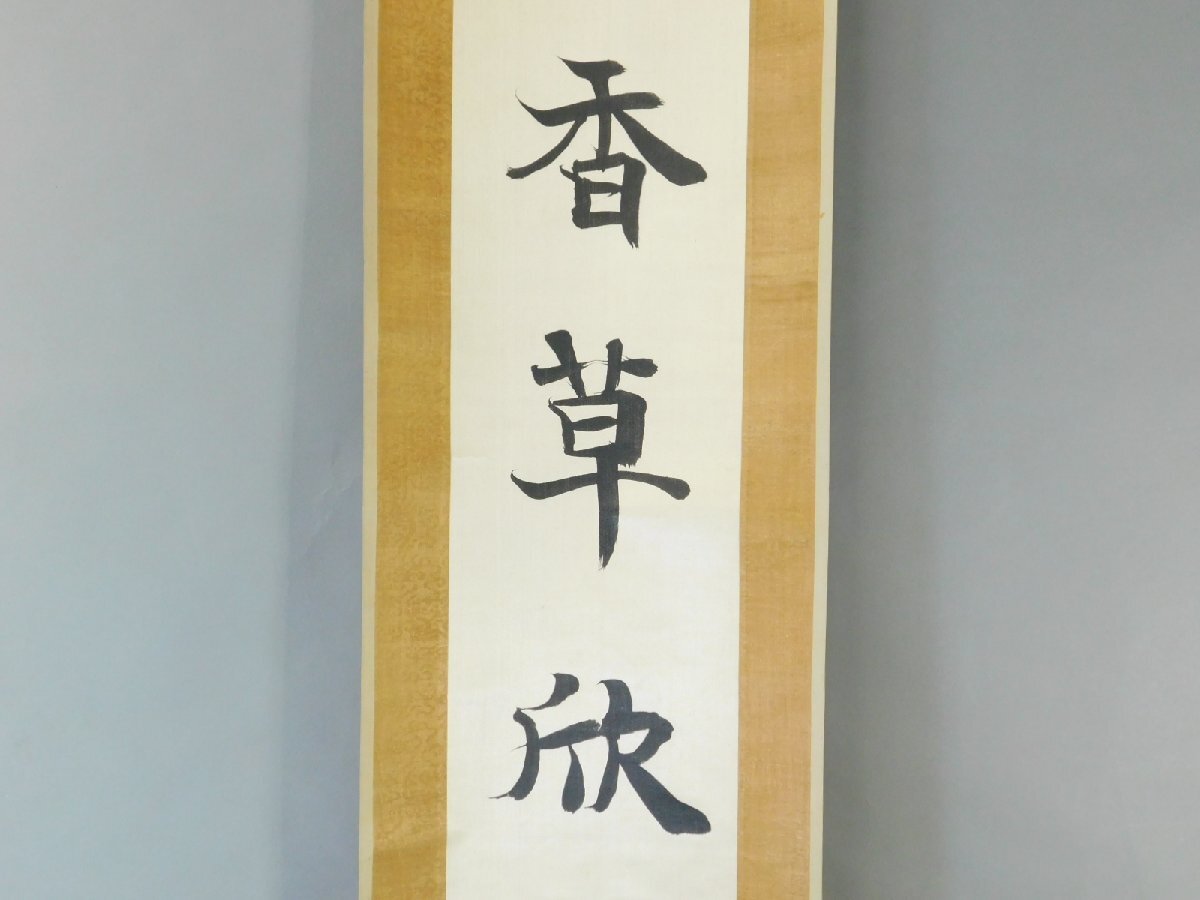 香草欣